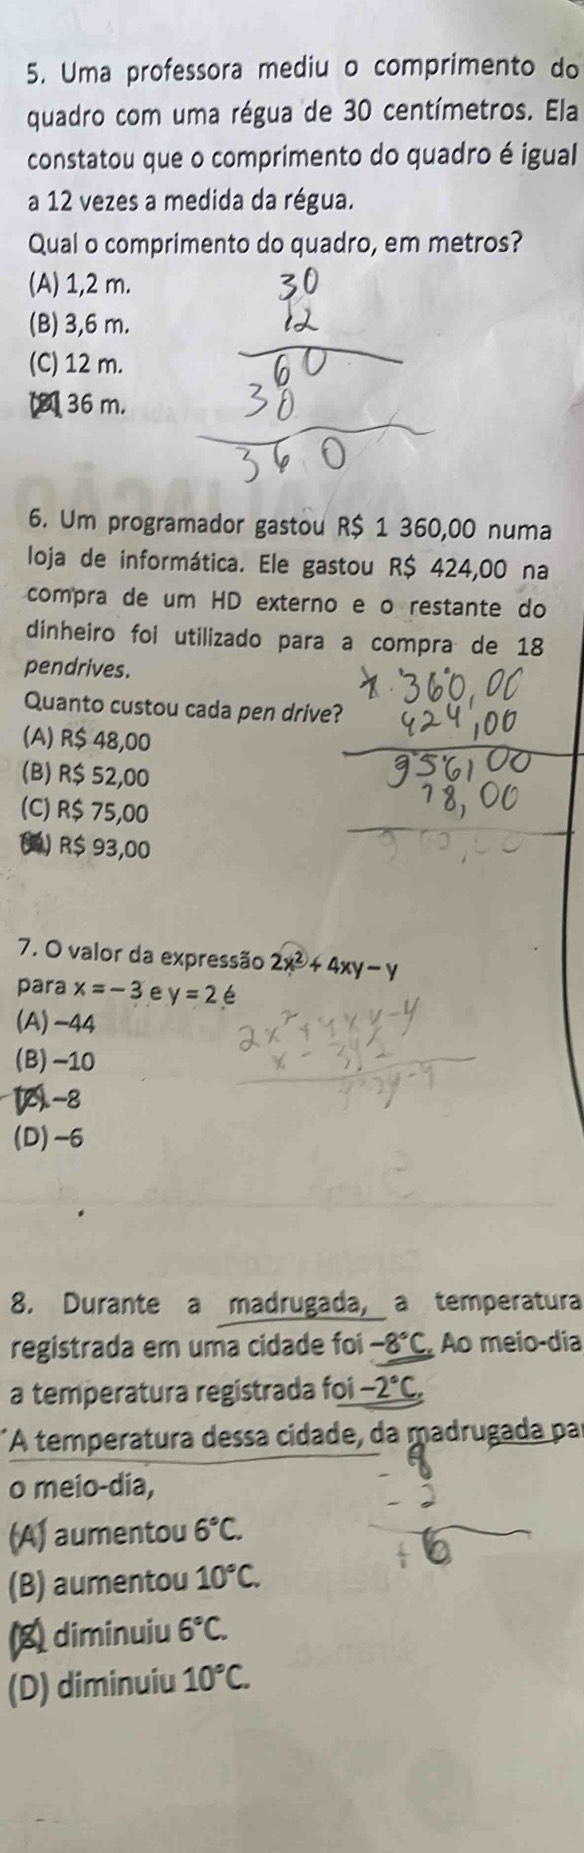 5. Uma professora mediu o comprimento do
quadro com uma régua de 30 centímetros. Ela
constatou que o comprimento do quadro é igual
a 12 vezes a medida da régua.
Qual o comprimento do quadro, em metros?
(A) 1,2 m.
(B) 3,6 m.
(C) 12 m.
36 m.
30
12
60
30
360
6. Um programador gastou R$ 1 360,00 numa
loja de informática. Ele gastou R$ 424,00 na
compra de um HD externo e o restante do
dinheiro foi utilizado para a compra de 18
pendrives.
Quanto custou cada pen drive?
(A) R$ 48,00
(B) R$ 52,00
(C) R$ 75,00
R$ 93,00
1.360,00
424,00
956,00
18,00
7. O valor da expressão 2x² + 4xy – y
para x = – 3 e y = 2 é
(A) –44
(B) –10
–8
(D) –6
2x² + 4xy - y
8. Durante a madrugada, a temperatura
registrada em uma cidade foi –8°C. Ao meio-dia
a temperatura registrada foi –2°C.
A temperatura dessa cidade, da madrugada par
o meio-dia,
(A) aumentou 6°C.
(B) aumentou 10°C.
diminuiu 6°C.
(D) diminuiu 10°C.
- 8
- 2
+ 6